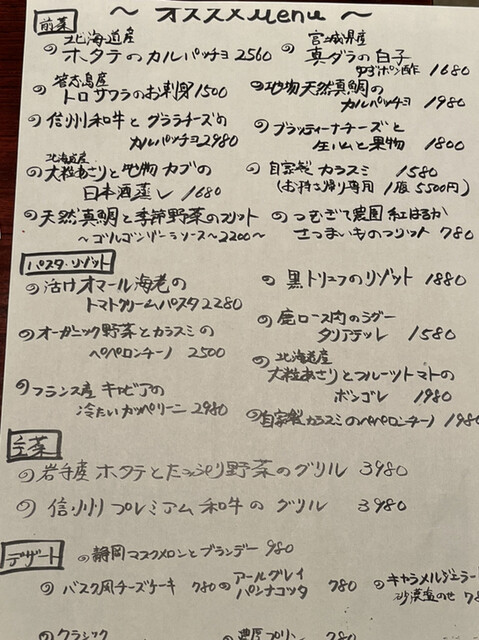 ～ オススメ Menu ～
前菜
北海道産
ホタテのカルパッチョ 2560
答志島産
トロサワラのお刺身 1500
信州和牛とグラナチーズの
カルパッチョ 2980
北海道産
大粒あさりと地物カブの
日本酒蒸し 1680
天然真鯛と季節野菜のフリット
～ゴルゴンゾーラソース～ 2200～
宮城県産
真ダラの白子
ゆずポン酢 1680
地物天然真鯛の
カルパッチョ 1980
ブラッティーナチーズと
生ハムと果物 1800
自家製カラスミ 1580
(お持ち帰り専用 1腹 5500円)
つむぎて農園 紅はるか
さつまいものフリット 780
パスタ・リゾット
活けオマール海老の
トマトクリームパスタ 2280
オーガニック野菜とカラスミの
ペペロンチーノ 2500
フランス産 キャビアの
冷たいカッペリーニ 2980
黒トリュフのリゾット 1880
鹿ロース肉のラグー
タリアテッレ 1580
北海道産
大粒あさりとフルーツトマトの
ボンゴレ 1980
自家製カラスミのペペロンチーノ 1980
主菜
岩手産 ホタテとたっぷり野菜のグリル 3980
信州プレミアム和牛のグリル 3980
デザート
静岡マスクメロンとブランデー 980
バスク風チーズケーキ 780
アールグレイ
パンナコッタ 780
キャラメルジェラー
沙漠塩のせ 7
クラシック
濃厚プリン 780